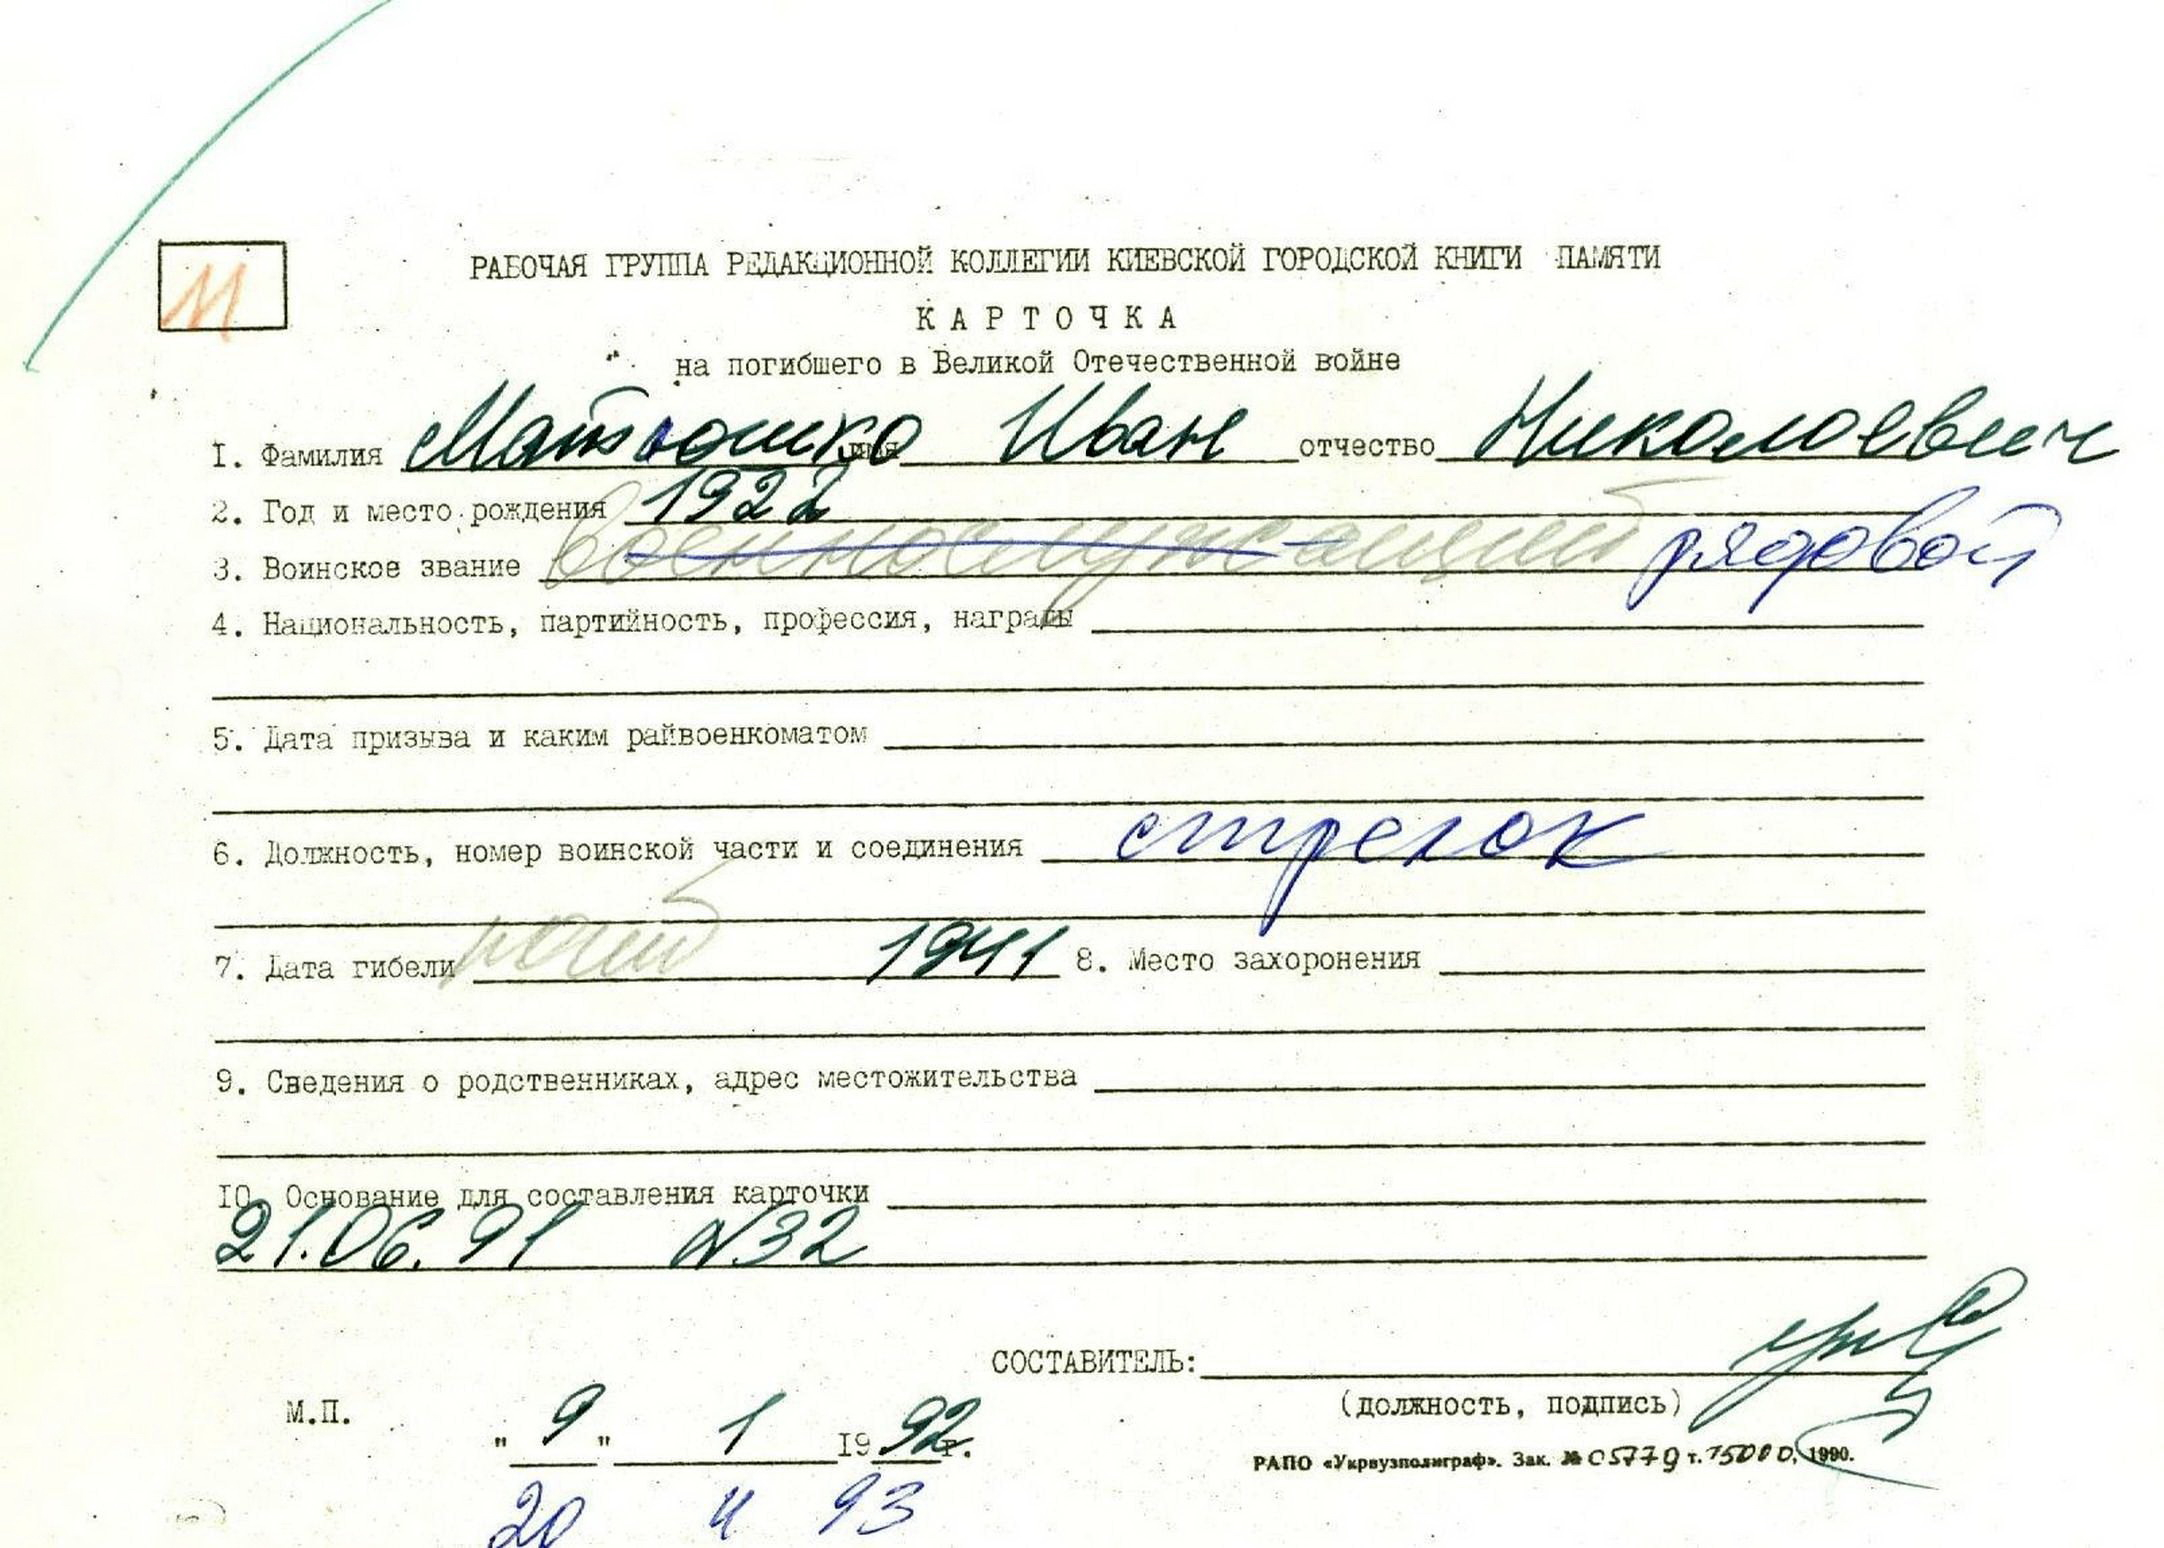 М
РАБОЧАЯ ГРУППА РЕДАКЦИОННОЙ КОЛЛЕГИИ КИЕВСКОЙ ГОРОДСКОЙ КНИГИ ПАМЯТИ
КАРТОЧКА
на погибшего в Великой Отечественной войне
1. Фамилия Матюшко имя Иван отчество Николаевич
2. Год и место рождения 1922
3. Воинское звание военнослужащий рядовой
4. Национальность, партийность, профессия, награды
5. Дата призыва и каким райвоенкоматом
6. Должность, номер воинской части и соединения стрелок
7. Дата гибели погиб 1941 8. Место захоронения
9. Сведения о родственниках, адрес местожительства
10. Основание для составления карточки
21.06.91 №32
СОСТАВИТЕЛЬ:
(должность, подпись)
М.П.
"9" 1 1992г.
РАПО «Укрвузполиграф». Зак. № 05779 т. 15000, 1990.
20 4 93